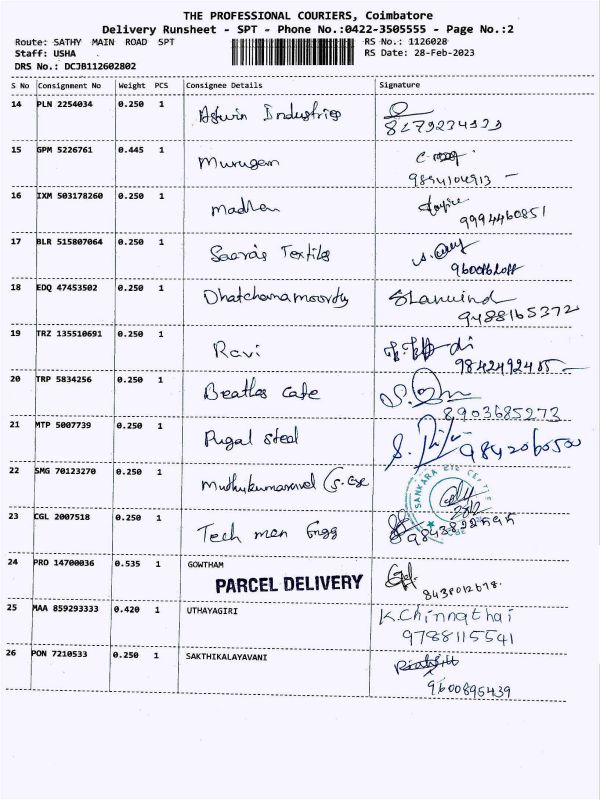 THE PROFESSIONAL COURIERS, Coimbatore
Delivery Runsheet - SPT - Phone No.:0422-3505555 - Page No.:2
Route: SATHY MAIN ROAD SPT
Staff: USHA
DRS No.: DCJB112602802
RS No.: 1126028
RS Date: 28-Feb-2023
S No Consignment No Weight PCS Consignee Details Signature
14 PLN 2254034 0.250 1 Aswin Industries
15 GPM 5226761 0.445 1 Murugan
16 IXM 503178260 0.250 1 Madhan
9994460851
17 BLR 515807064 0.250 1 Textiles
18 EDQ 47453502 0.250 1 Dhatchanamoorthy
9488165372
19 TRZ 135510691 0.250 1 Ravi
20 TRP 5834256 0.250 1 Beatles Cafe
8903685273
21 MTP 5007739 0.250 1 Pugal Steel
9842060500
22 SMG 70123270 0.250 1 Muthukumaravel
SANKARA EYE CENTRE
23 CGL 2007518 0.250 1 Tech men Engg
24 PRO 14700036 0.535 1 GOWTHAM
PARCEL DELIVERY
8438012678
25 MAA 859293333 0.420 1 UTHAYAGIRI K.Chinnathai
9788115541
26 PON 7210533 0.250 1 SAKTHIKALAYAVANI
9600895439